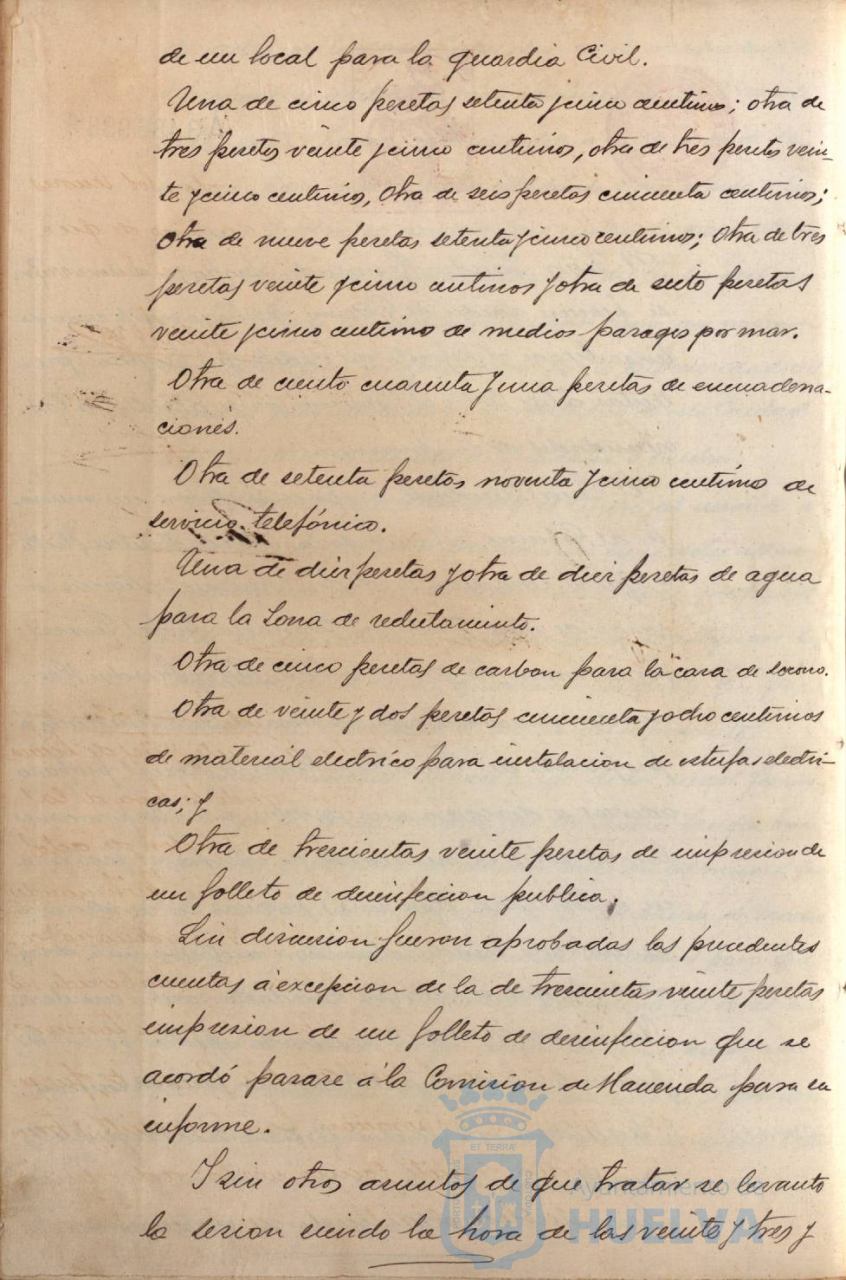 de un local para la guardia Civil.
Una de cinco pesetas setenta y cinco centimos; otra de
tres pesetas veinte y cinco centimos, otra de tres pesetas vein-
te y cinco centimos, Otra de seis pesetas cincuenta centimos;
Otra de nueve pesetas setenta y cinco centimos; Otra de tres
pesetas veinte y cinco centimos y otra de siete pesetas
veinte y cinco centimos de medios pasages por mar.
Otra de ciento cuarenta y una pesetas de encuaderna-
ciones.
Otra de setenta pesetas noventa y cinco centimos de
servicio telefónico.
Una de diez pesetas y otra de diez pesetas de agua
para la Zona de reclutamiento.
Otra de cinco pesetas de carbon para la casa de socorro.
Otra de veinte y dos pesetas cincuenta y ocho centimos
de material electrico para instalacion de estufas electri-
cas; y
Otra de trescientas veinte pesetas de impresion de
un folleto de desinfeccion publica.
Sin discusion fueron aprobadas las precedentes
cuentas á excepcion de la de trescientas veinte pesetas
impresion de un folleto de desinfeccion que se
acordó pasase á la Comision de Hacienda para su
informe.
Y sin otros asuntos de que tratar se levanto
la sesion siendo la hora de las veinte y tres y
ET TERRA
Ayuntamiento de
HUELVA